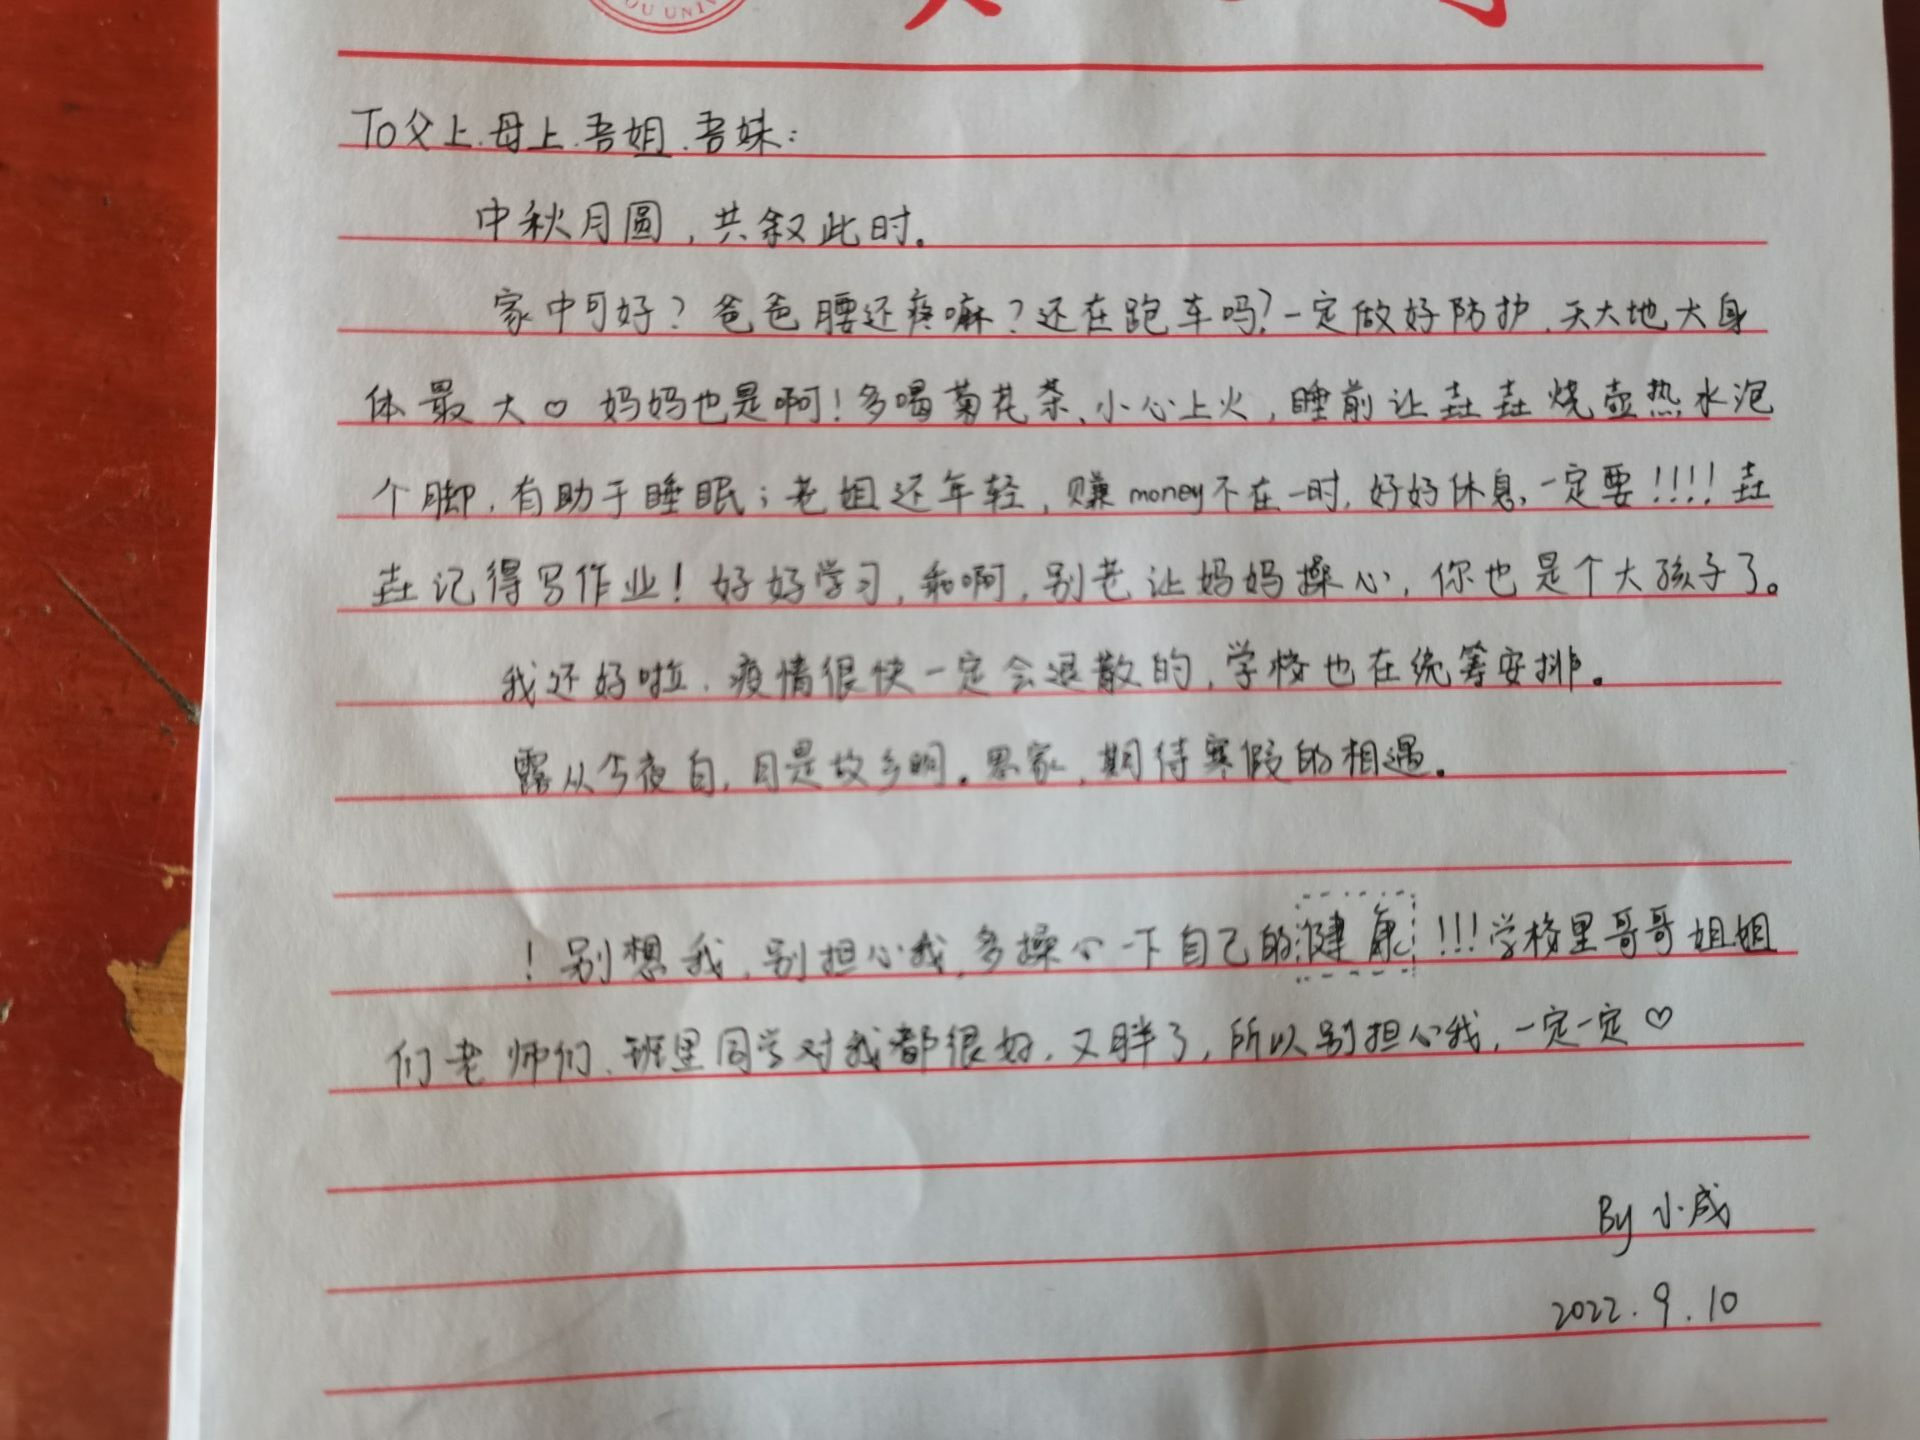 OU UNIV
To父上.母上.吾姐.吾妹:
中秋月圆,共叙此时。
家中可好?爸爸腰还疼嘛?还在跑车吗?一定做好防护,天大地大身
体最大♡ 妈妈也是啊!多喝菊花茶、小心上火,睡前让垚垚烧壶热水泡
个脚,有助于睡眠;老姐还年轻,赚money不在一时,好好休息,一定要!!!!垚
垚记得写作业!好好学习,乖啊,别老让妈妈操心,你也是个大孩子了。
我还好啦,疫情很快一定会退散的,学校也在统筹安排。
露从今夜白,月是故乡明。思家,期待寒假的相遇。
!别想我,别担心我,多操心一下自己的健康!!!学校里哥哥姐姐
们老师们、班里同学对我都很好,又胖了,所以别担心我,一定一定♡
By 小成
2022.9.10